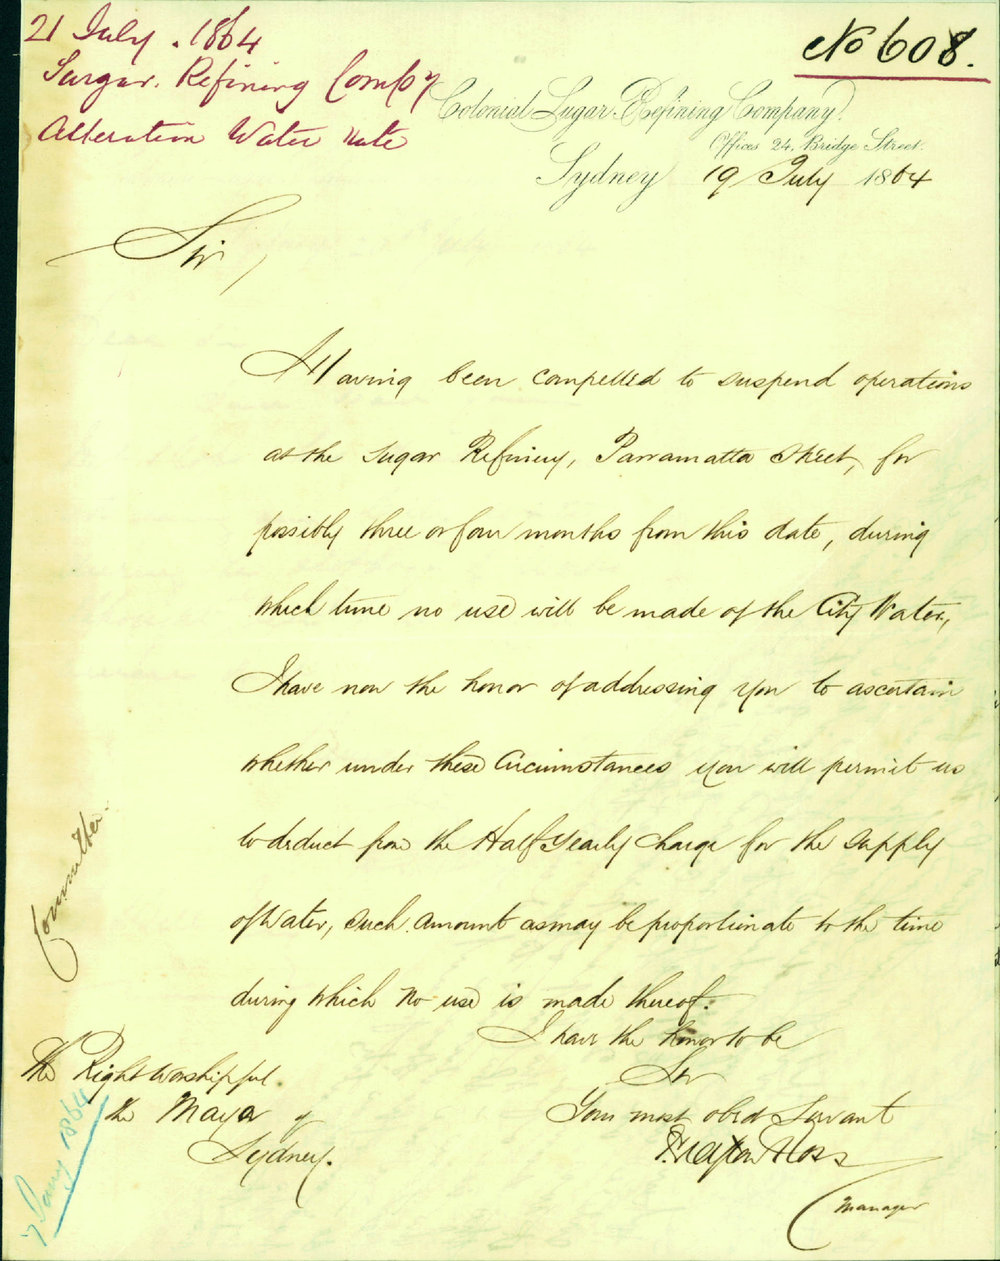 21 July. 1864
Sugar. Refining Compy
Alteration Water Rate
No 608.
Colonial Sugar Refining Company.
Offices 24, Bridge Street.
Sydney 19 July 1864
Sir,
Having been compelled to suspend operations
at the Sugar Refinery, Parramatta Street, for
possibly three or four months from this date, during
which time no use will be made of the City Water,
I have now the honor of addressing you to ascertain
whether under these Circumstances you will permit us
to deduct from the Half Yearly Charge for the supply
of Water, such amount as may be proportionate to the time
during which no use is made thereof.
I have the honor to be
Sir
Your most obed Servant
Manager
The Right Worshipful
the Mayor of
Sydney.
Committee.
1864